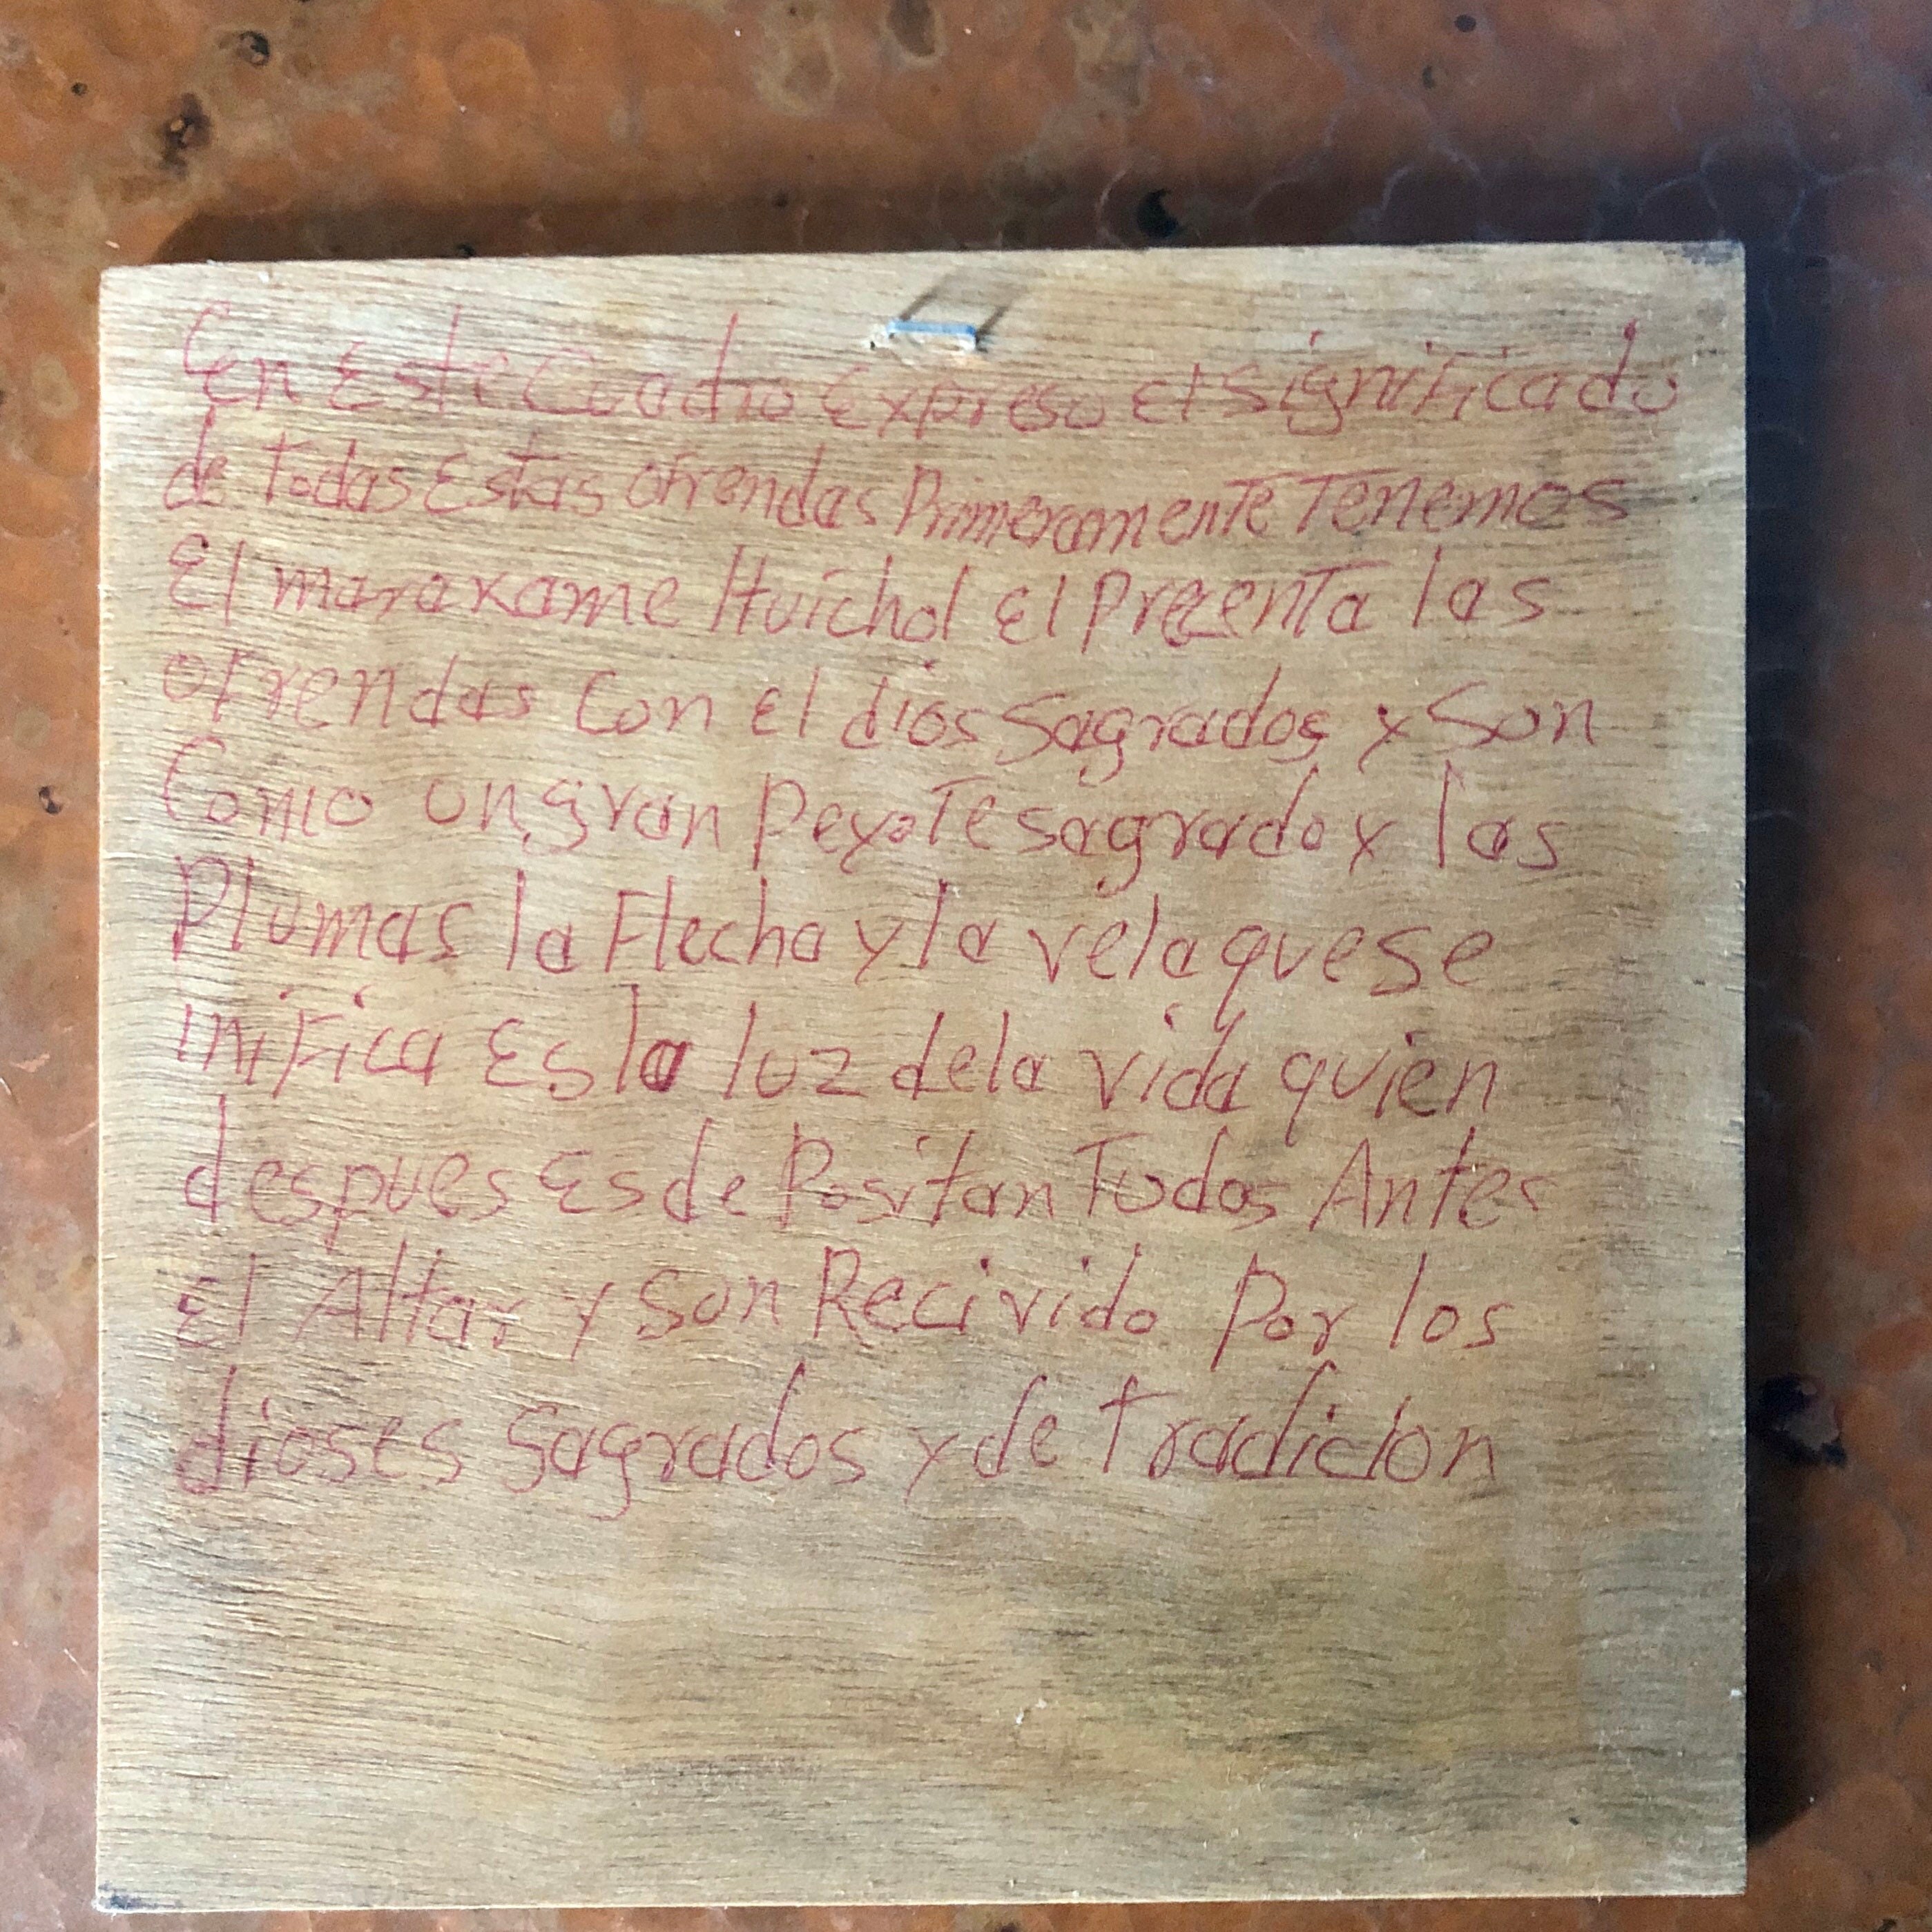 En Este Cuadro Expreso El significado
de Todas Estas ofrendas Primeramente Tenemos
El maraxame Huichol El Precenta las
ofrendas Con El dios sagrados y son
Como un gran Peyote sagrado y las
Plumas la Flecha y la vela que se
inifica Es la luz de la vida quien
despues Es de Positan Todos Antes
El Altar y son Recivido Por los
dioses sagrados y de tradicion